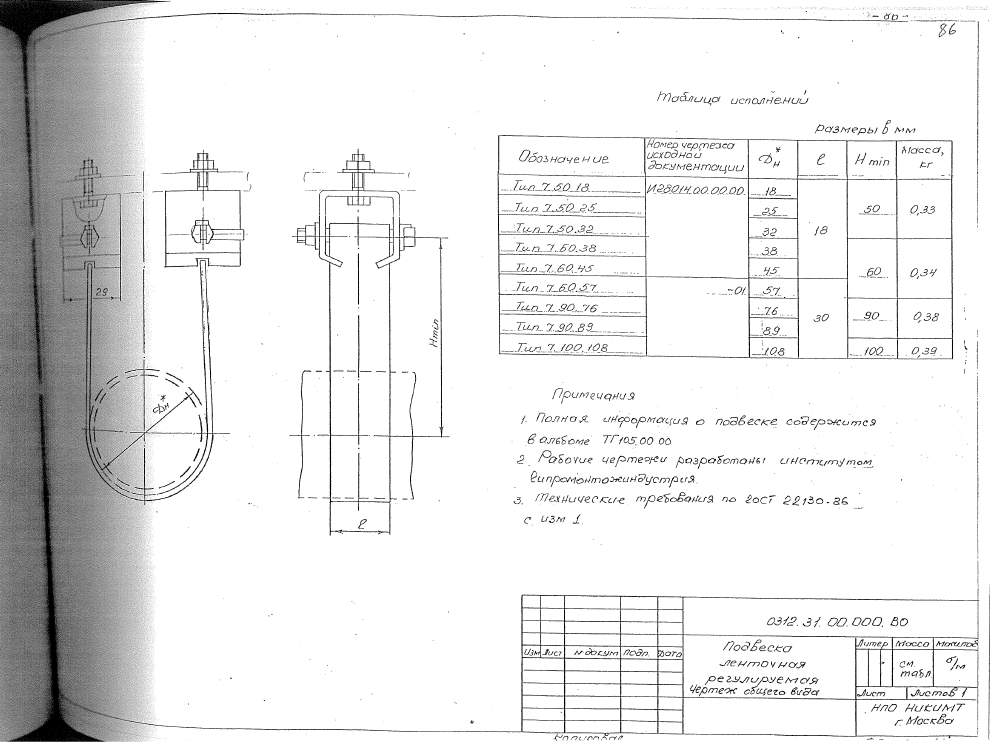 - 86 -
86
Таблица исполнений
размеры в мм
Обозначение
Номер чертежа исходной документации
Фн*
l
H min
Масса, кг
Тип 7.50.18 И28014.00.00.00. 18 18 50 0,33
Тип 7.50.25 25
Тип 7.50.32 32
Тип 7.60.38 38 60 0,34
Тип 7.60.45 45
Тип 7.60.57 -01 57 30
Тип 7.90.76 76 90 0,38
Тип 7.90.89 89
Тип 7.100.108 108 100 0,39
29
Фн*
Hmin
l
Примечания
1. Полная информация о подвеске содержится
в альбоме ТГ105.00.00
2. Рабочие чертежи разработаны институтом
Гипромонтажиндустрия.
3. Технические требования по ГОСТ 22130-86
с изм 1.
0312.31.00.000. ВО
Изм Лист N докум Подп. Дата
Подвеска
ленточная
регулируемая
Чертеж общего вида
Литер Масса Масштаб
см. табл. б/м
Лист Листов 1
НПО НИКИМТ
г. Москва
Копировал